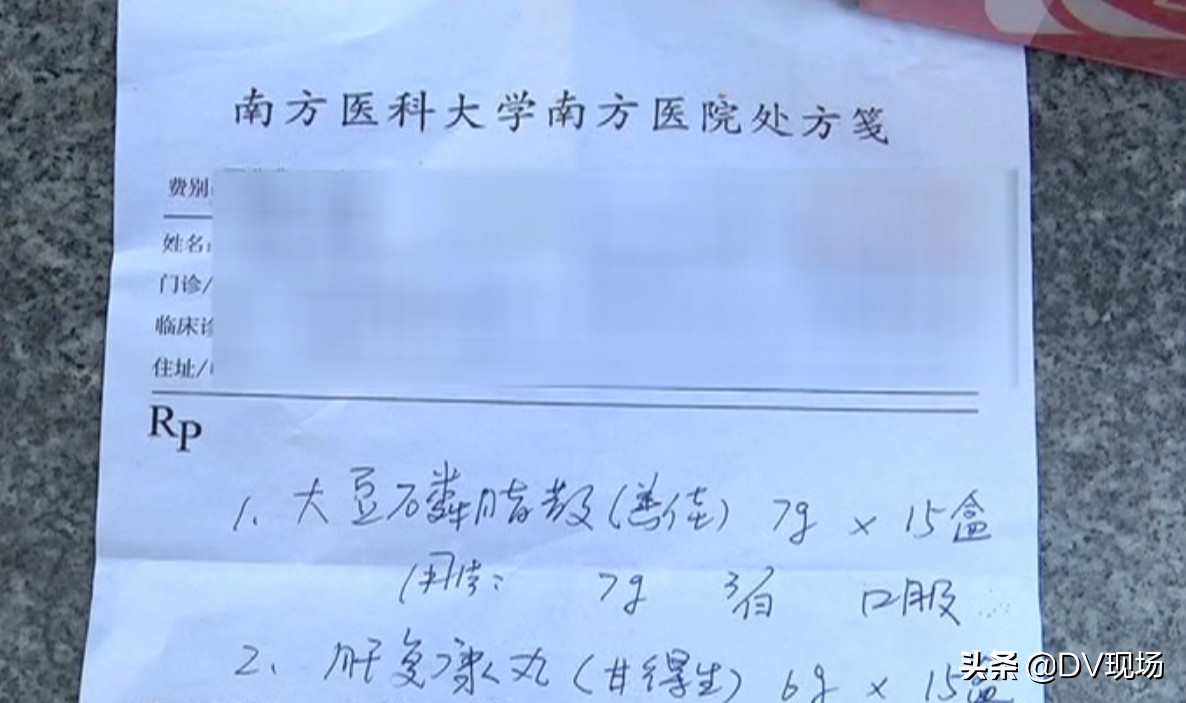 南方医科大学南方医院处方笺
费别:
姓名:
门诊/
临床诊
住址/
Rp
1. 大豆磷脂散(善佳) 7g × 15盒
用法: 7g 3/日 口服
2. 肝复康丸(甘得生) 6g × 15盒
头条 @DV现场